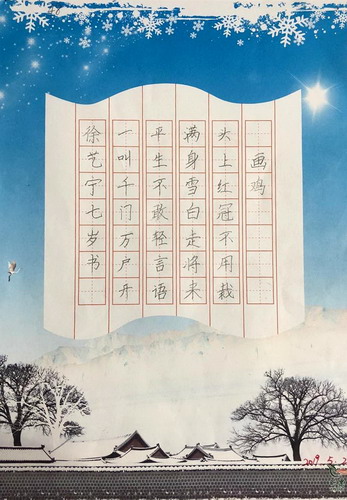 画鸡
头上红冠不用裁
满身雪白走将来
平生不敢轻言语
一叫千门万户开
徐艺宁七岁书